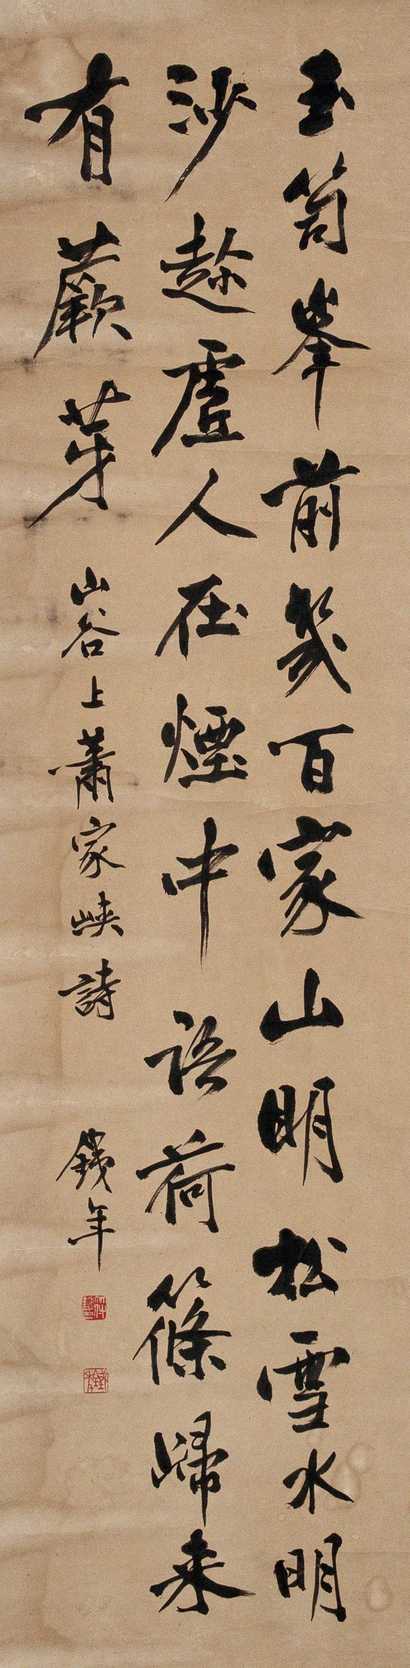 玉笥峯前幾百家山明松雪水明
沙趂虛人在煙中語荷篠歸来
有蕨芽
山谷上蕭家峡詩
錢年